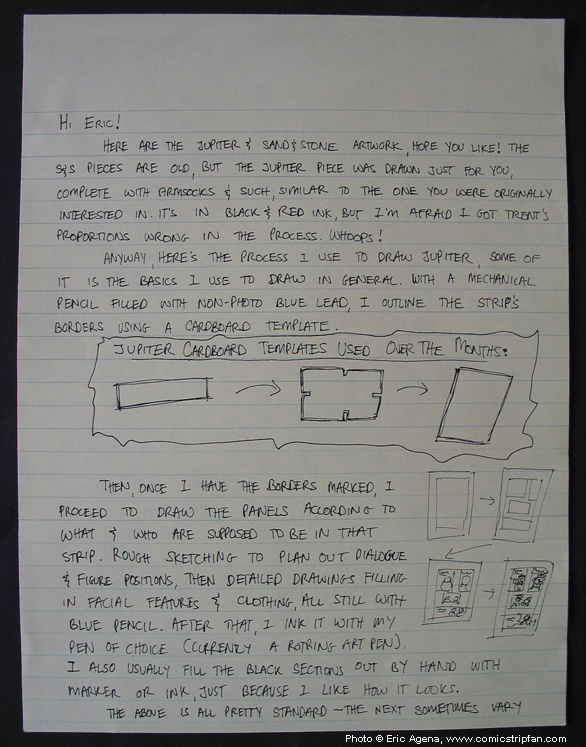 Hi Eric!
HERE ARE THE JUPITER & SAND&STONE ARTWORK, HOPE YOU LIKE! THE
S&S PIECES ARE OLD, BUT THE JUPITER PIECE WAS DRAWN JUST FOR YOU,
COMPLETE WITH ARMSOCKS & SUCH, SIMILAR TO THE ONE YOU WERE ORIGINALLY
INTERESTED IN. IT'S IN BLACK & RED INK, BUT I'M AFRAID I GOT TRENT'S
PROPORTIONS WRONG IN THE PROCESS. WHOOPS!
ANYWAY, HERE'S THE PROCESS I USE TO DRAW JUPITER, SOME OF
IT IS THE BASICS I USE TO DRAW IN GENERAL. WITH A MECHANICAL
PENCIL FILLED WITH NON-PHOTO BLUE LEAD, I OUTLINE THE STRIP'S
BORDERS USING A CARDBOARD TEMPLATE.
JUPITER CARDBOARD TEMPLATES USED OVER THE MONTHS:
THEN, ONCE I HAVE THE BORDERS MARKED, I
PROCEED TO DRAW THE PANELS ACCORDING TO
WHAT & WHO ARE SUPPOSED TO BE IN THAT
STRIP. ROUGH SKETCHING TO PLAN OUT DIALOGUE
& FIGURE POSITIONS, THEN DETAILED DRAWINGS FILLING
IN FACIAL FEATURES & CLOTHING, ALL STILL WITH
BLUE PENCIL. AFTER THAT, I INK IT WITH MY
PEN OF CHOICE (CURRENTLY A ROTRING ART PEN).
I ALSO USUALLY FILL THE BLACK SECTIONS OUT BY HAND WITH
MARKER OR INK, JUST BECAUSE I LIKE HOW IT LOOKS.
THE ABOVE IS ALL PRETTY STANDARD – THE NEXT SOMETIMES VARY
Photo © Eric Agena, www.comicstripfan.com